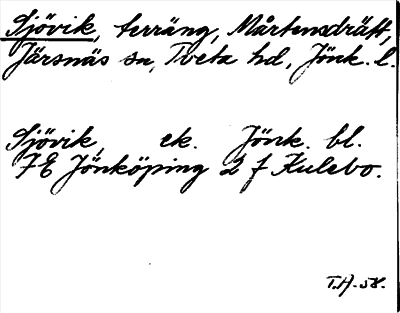 Sjövik, terräng, Mårtensdrätt,
Järsnäs sn, Tveta hd, Jönk. l.
Sjövik, ek. Jönk. bl.
7E Jönköping 2 f Kulebo.
T.H.-58.